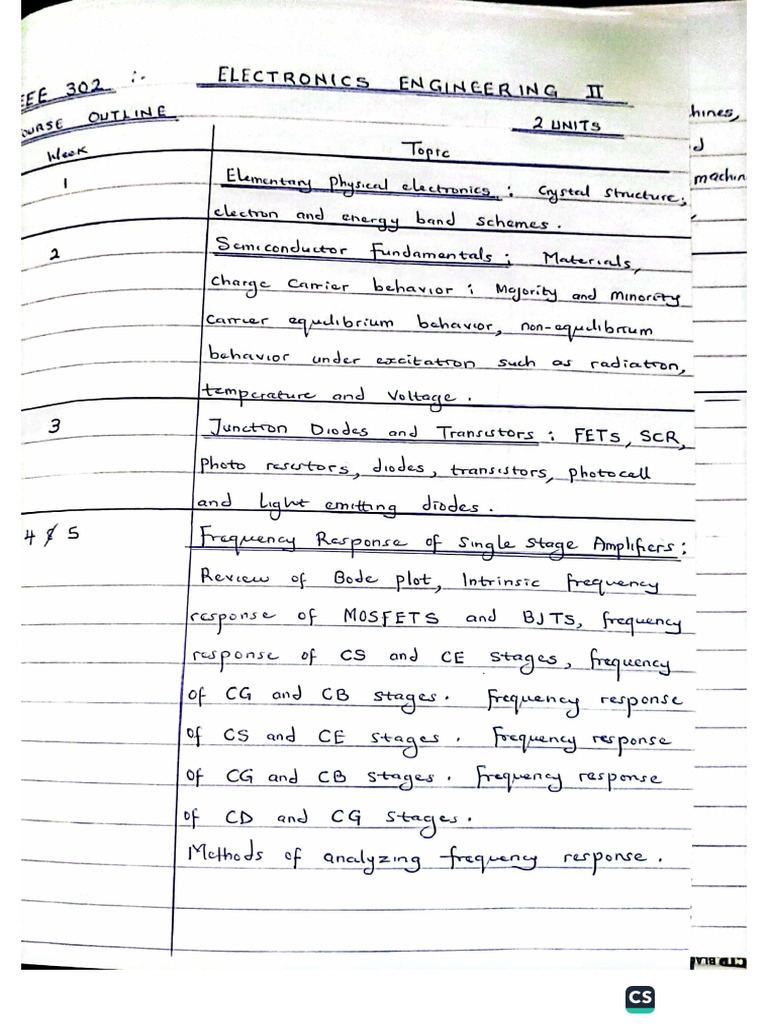 EEE 302 :- ELECTRONICS ENGINEERING II
COURSE OUTLINE 2 UNITS
Week Topic
1 Elementary physical electronics : Crystal structure;
electron and energy band schemes.
2 Semiconductor Fundamentals ; Materials,
charge carrier behavior ; Majority and minority
carrier equilibrium behavior, non-equilibrium
behavior under excitation such as radiation,
temperature and Voltage.
3 Junction Diodes and Transistors : FETs, SCR,
photo resistors, diodes, transistors, photocell
and light emitting diodes.
4 & 5 Frequency Response of Single Stage Amplifiers:
Review of Bode plot, Intrinsic frequency
response of MOSFETS and BJTS, frequency
response of CS and CE stages, frequency
of CG and CB stages. Frequency response
of CS and CE stages. Frequency response
of CG and CB stages. Frequency response
of CD and CG stages.
Methods of analyzing frequency response.
hines,
d
machin
CS